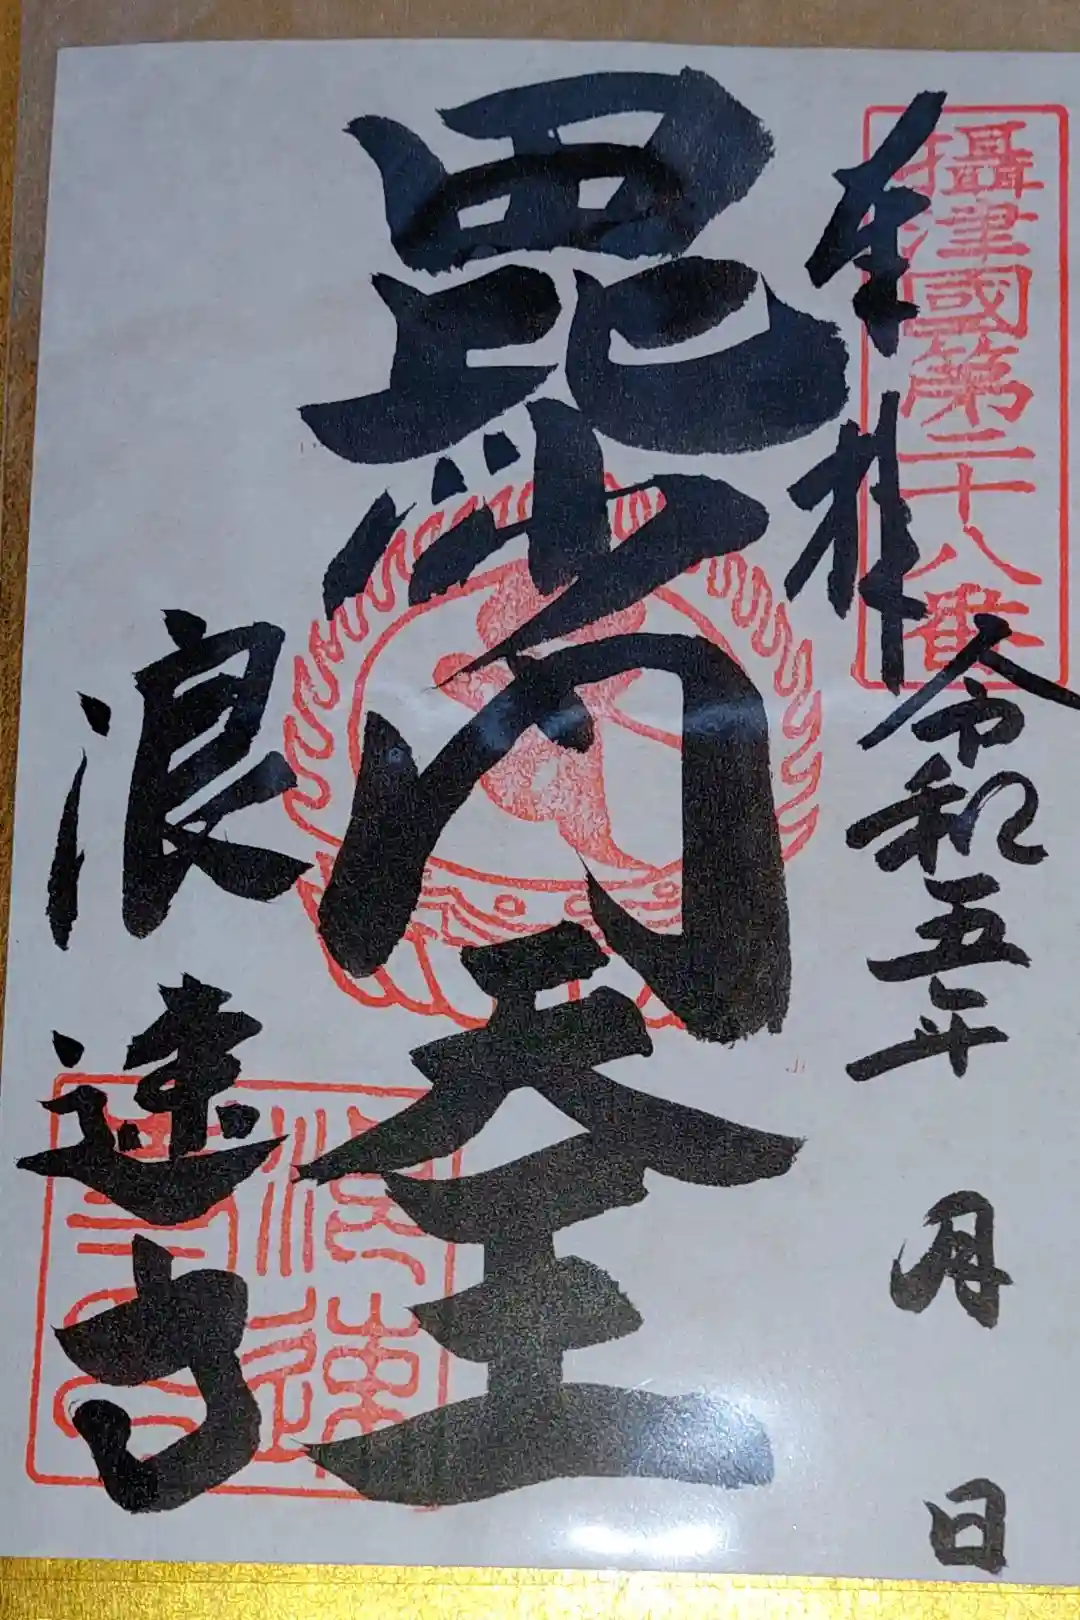 攝津國第二十八番
奉拝
令和五年 月 日
毘沙門天王
浪速寺